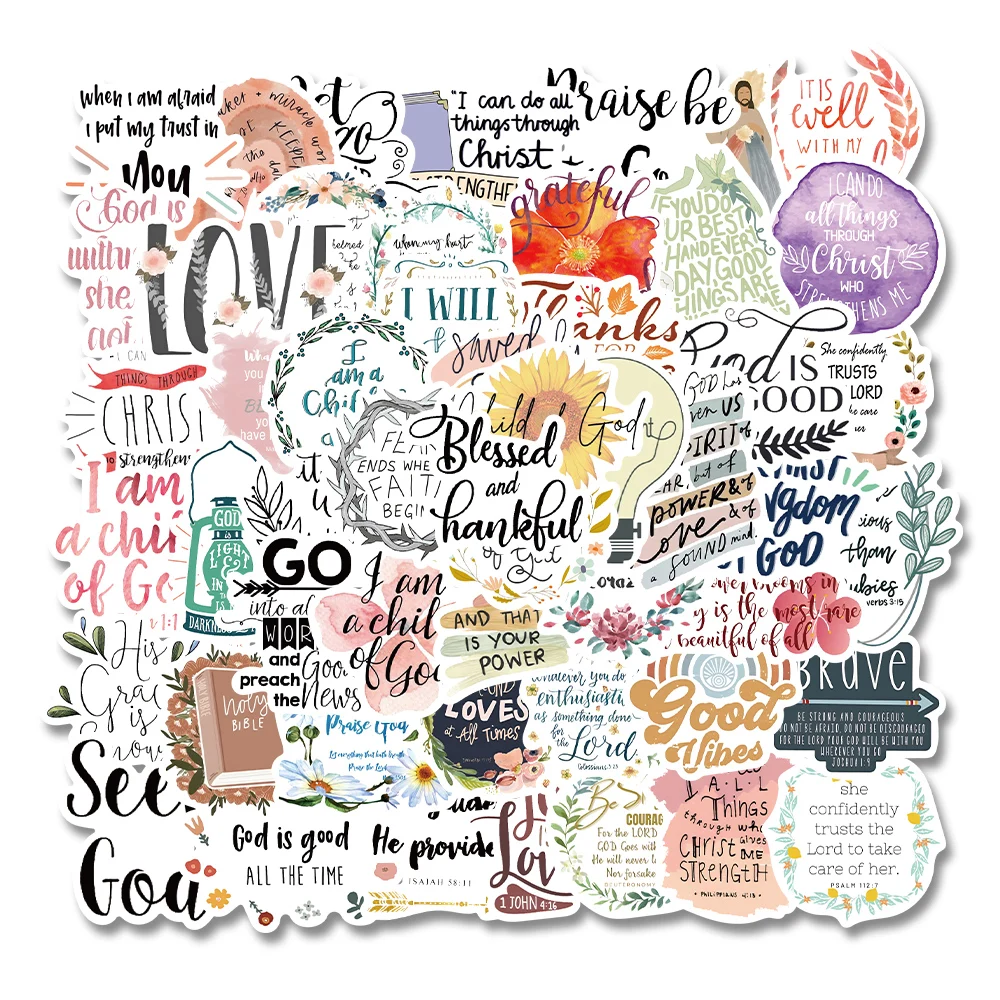 when I am afraid
I put my trust in
You
maker + miracle wor
KEEPER
"I can do all
things through
Christ
STRENGTHE
Praise be
IT IS
well
WITH MY
God is
within
she
not
LOVE
when my heart
I WILL
grateful
IF YOU DO
UR BEST
HAND EVERY
DAY GOOD
THINGS ARE
I CAN DO
all things
THROUGH
Christ
WHO
STRENGTHENS ME
I CAN
THINGS THROUGH
CHRIST
to strengthen
you
have
I
am a
Child
saved
Thanks
FOR
God IS
GOOD
She confidently
TRUSTS
LORD
care
FEAR
ENDS WHE
FAITH
BEGIN
child
God
Blessed
and
thankful
GOD has
en US
SPIRIT of
but of
POWER & of
LOVE & of
a SOUND mind.
I am
a child
of Go
GOD
is
LIGHT
IN
IS
DARKNESS
it
GO
into al
WOR
and
preach
the
Good
News
I am
a chil
of Go
AND THAT
IS YOUR
POWER
ngdom
OF GOD
cious
than
rubies
verbs 3:15
blooms in
y is the most rare
beautiful of all
His
Grace
is
now
holy
BIBLE
Praise God
Let everything that hath breath
Praise the Lord
LOVES
at All Times
Whatever you do
enthusiasti
as something done
for the Lord
Colossians 3:23
Good
Vibes
BRAVE
BE STRONG AND COURAGEOUS
DO NOT BE AFRAID, DO NOT BE DISCOURAGED
FOR THE LORD YOUR GOD WILL BE WITH YOU
WHEREVER YOU GO
JOSHUA 1:9
See
Goa
God is good
ALL THE TIME
He provide
ISAIAH 58:11
1 JOHN 4:16
Be S
COURAG
For the LORD
GOD Goes with
He will never l
Nor forsake
DEUTERONOMY
ALL
THINGS
through who
CHRIST GIVES
ME
STRENGTH
• PHILIPPIANS 4:13 •
she
confidently
trusts the
Lord to take
care of her.
PSALM 112:7